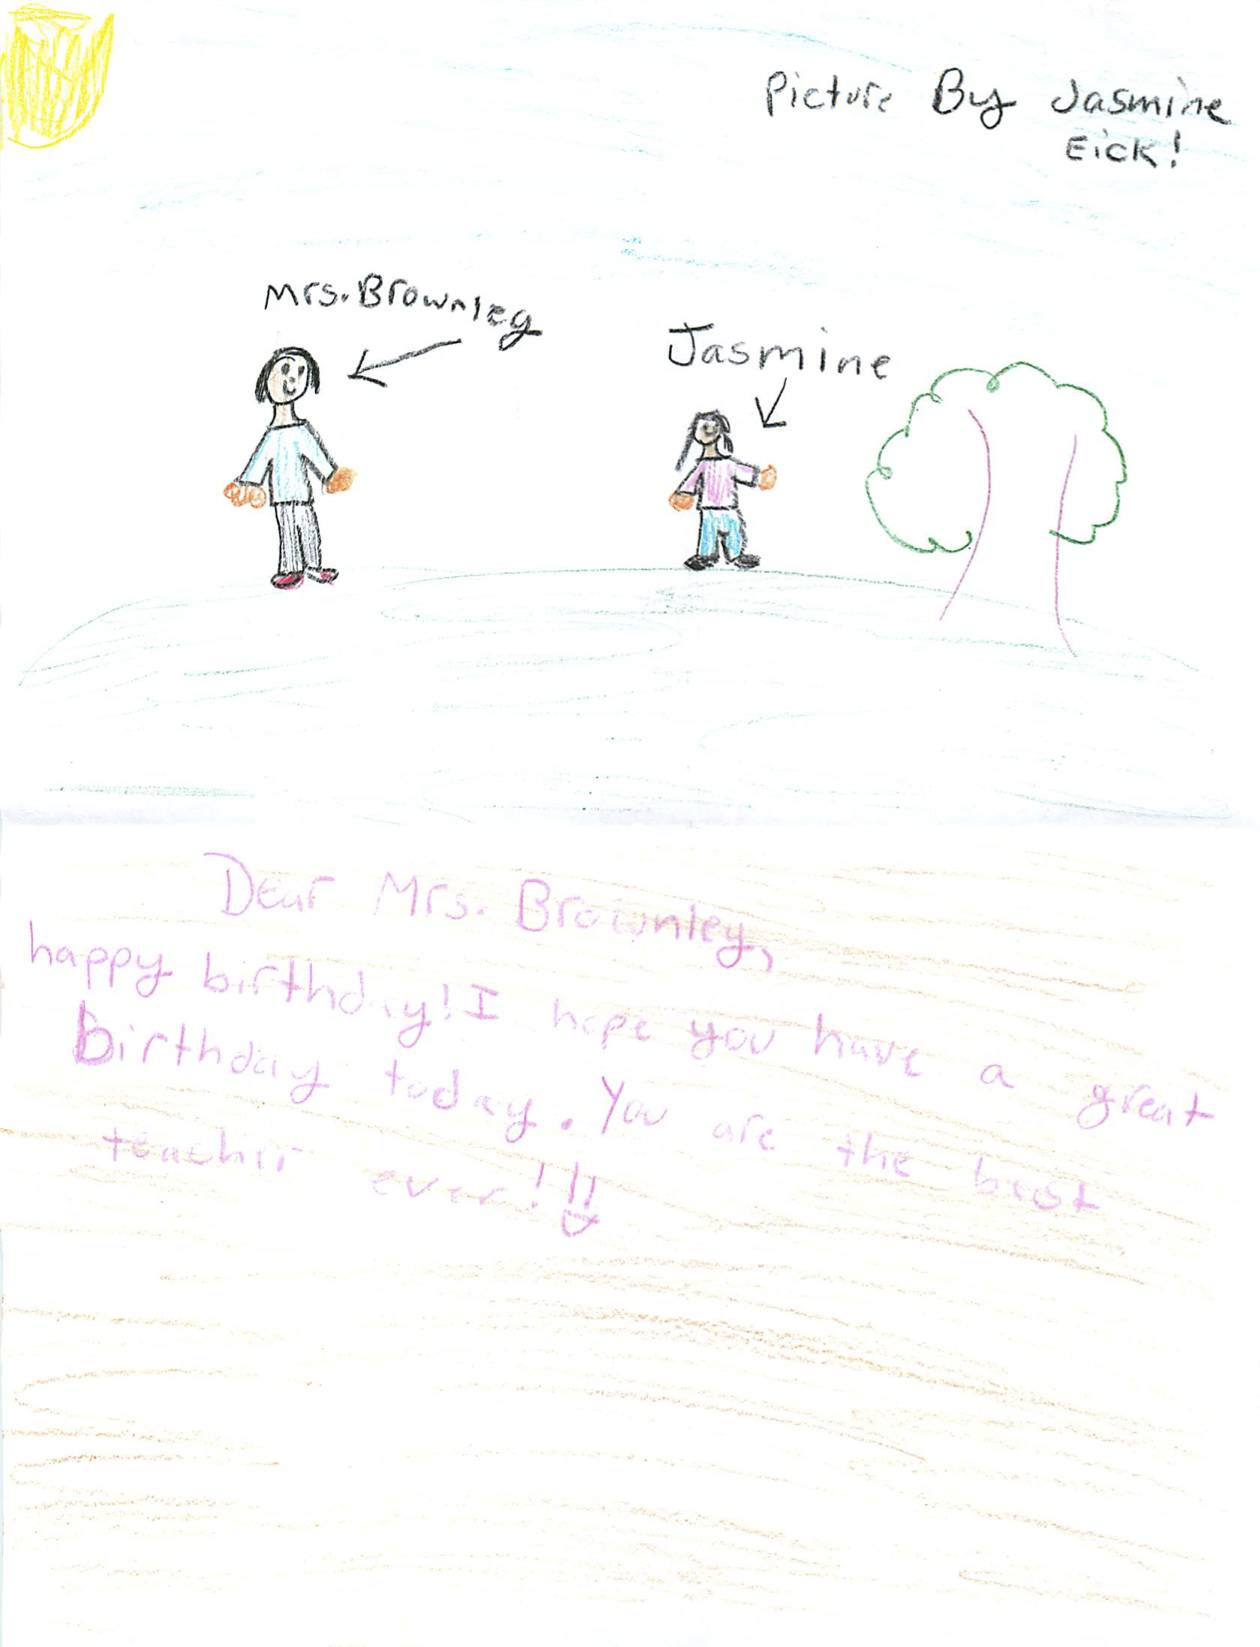 Picture By Jasmine
Eick!
Mrs. Brownley
Jasmine
Dear Mrs. Brownley,
happy birthday! I hope you have a great
Birthday today. You are the best
teacher ever!!!